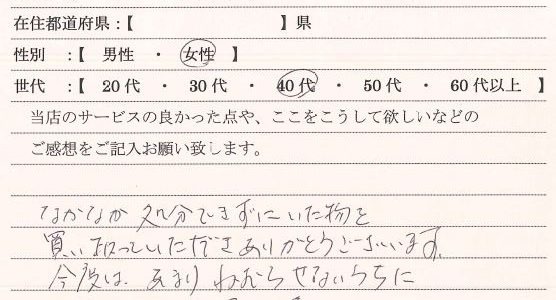 在住都道府県：【　　　　　　　　】県
性別　：【　男性　・　女性　】
世代　：【　20代　・　30代　・　40代　・　50代　・　60代以上　】
当店のサービスの良かった点や、ここをこうして欲しいなどの
ご感想をご記入お願い致します。
なかなか処分できずにいた物を
買い取っていただきありがとうございます。
今後は、あまりねむらせないうちに